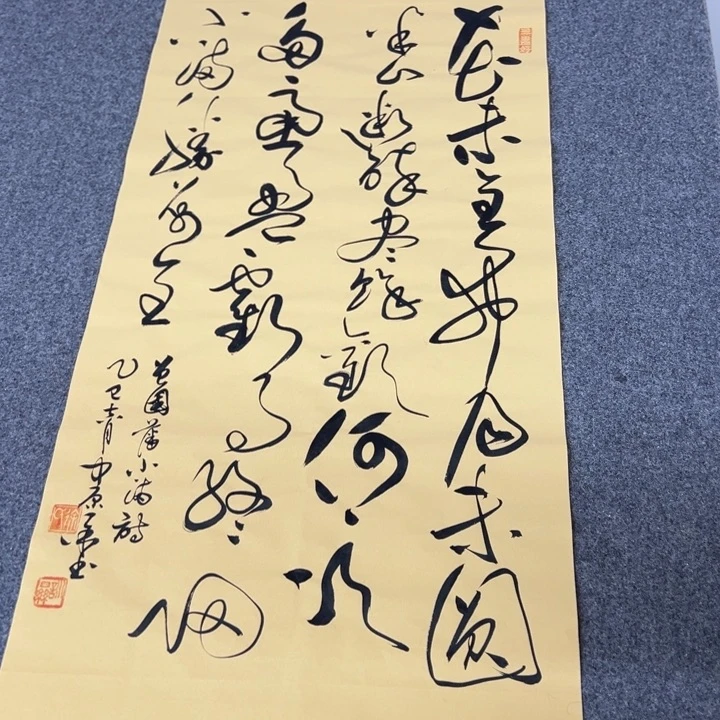 花未全开月未圆
半山微醉尽馀歡何须
多慮盈虧事终归
小满胜万全
曾国藩小满诗
乙巳月中原书